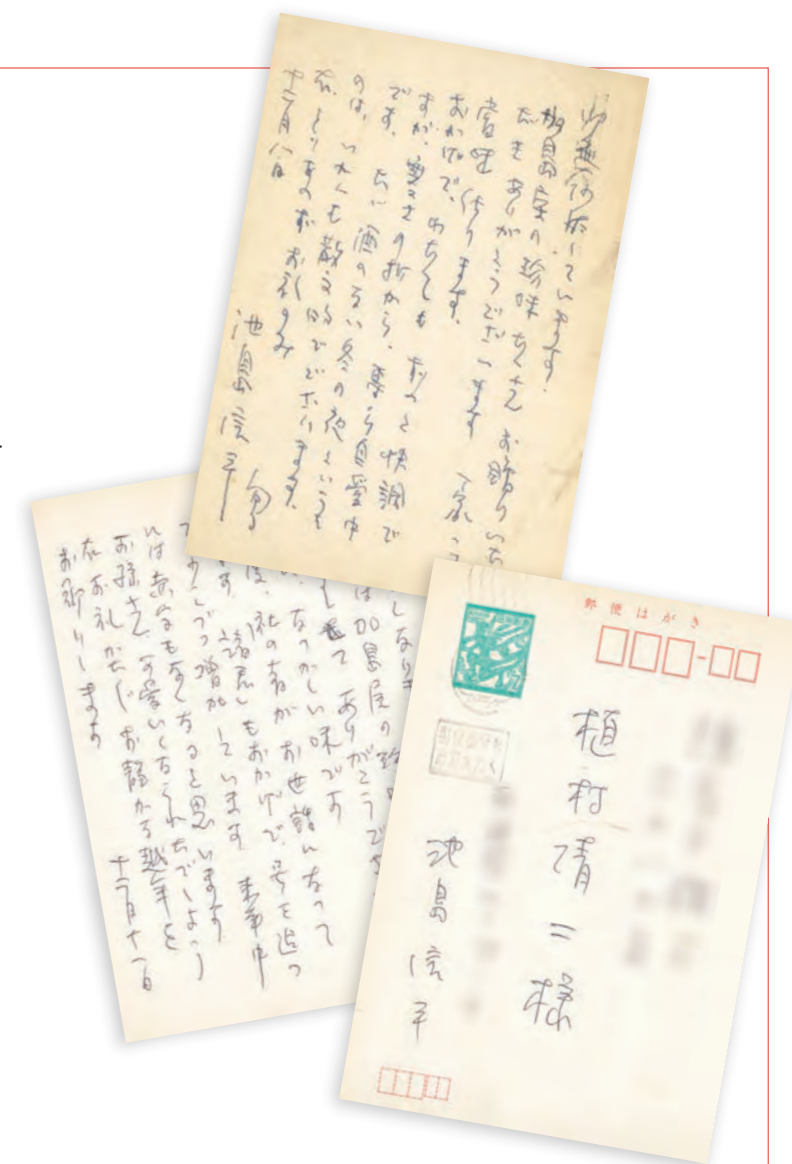 御無沙汰しています。
加島屋の珍味たくさんお贈りいた
だきありがとうございます
賞味仕ります。
おかげで、わたくしも わりと快調で
すが、寒さの折から、専ら自愛中
です。たゞ酒のない冬の夜というも
のは、いかにも散文的でございます。
右、とりあえずお礼のみ
十二月八日
池島信平
は加島屋の珍
て ありがとうござ
なつかしい味です
社の者がお世話になって
「諸君」もおかげで、号を追っ
て少しづつ増加しています 来年中
には赤字もなくなると思います
お孫さん 可愛いくなられたでしょう
右お礼かたがた お静かな越年を
お祈りします
十二月十一日
郵便はがき
植村清二様
池島信平